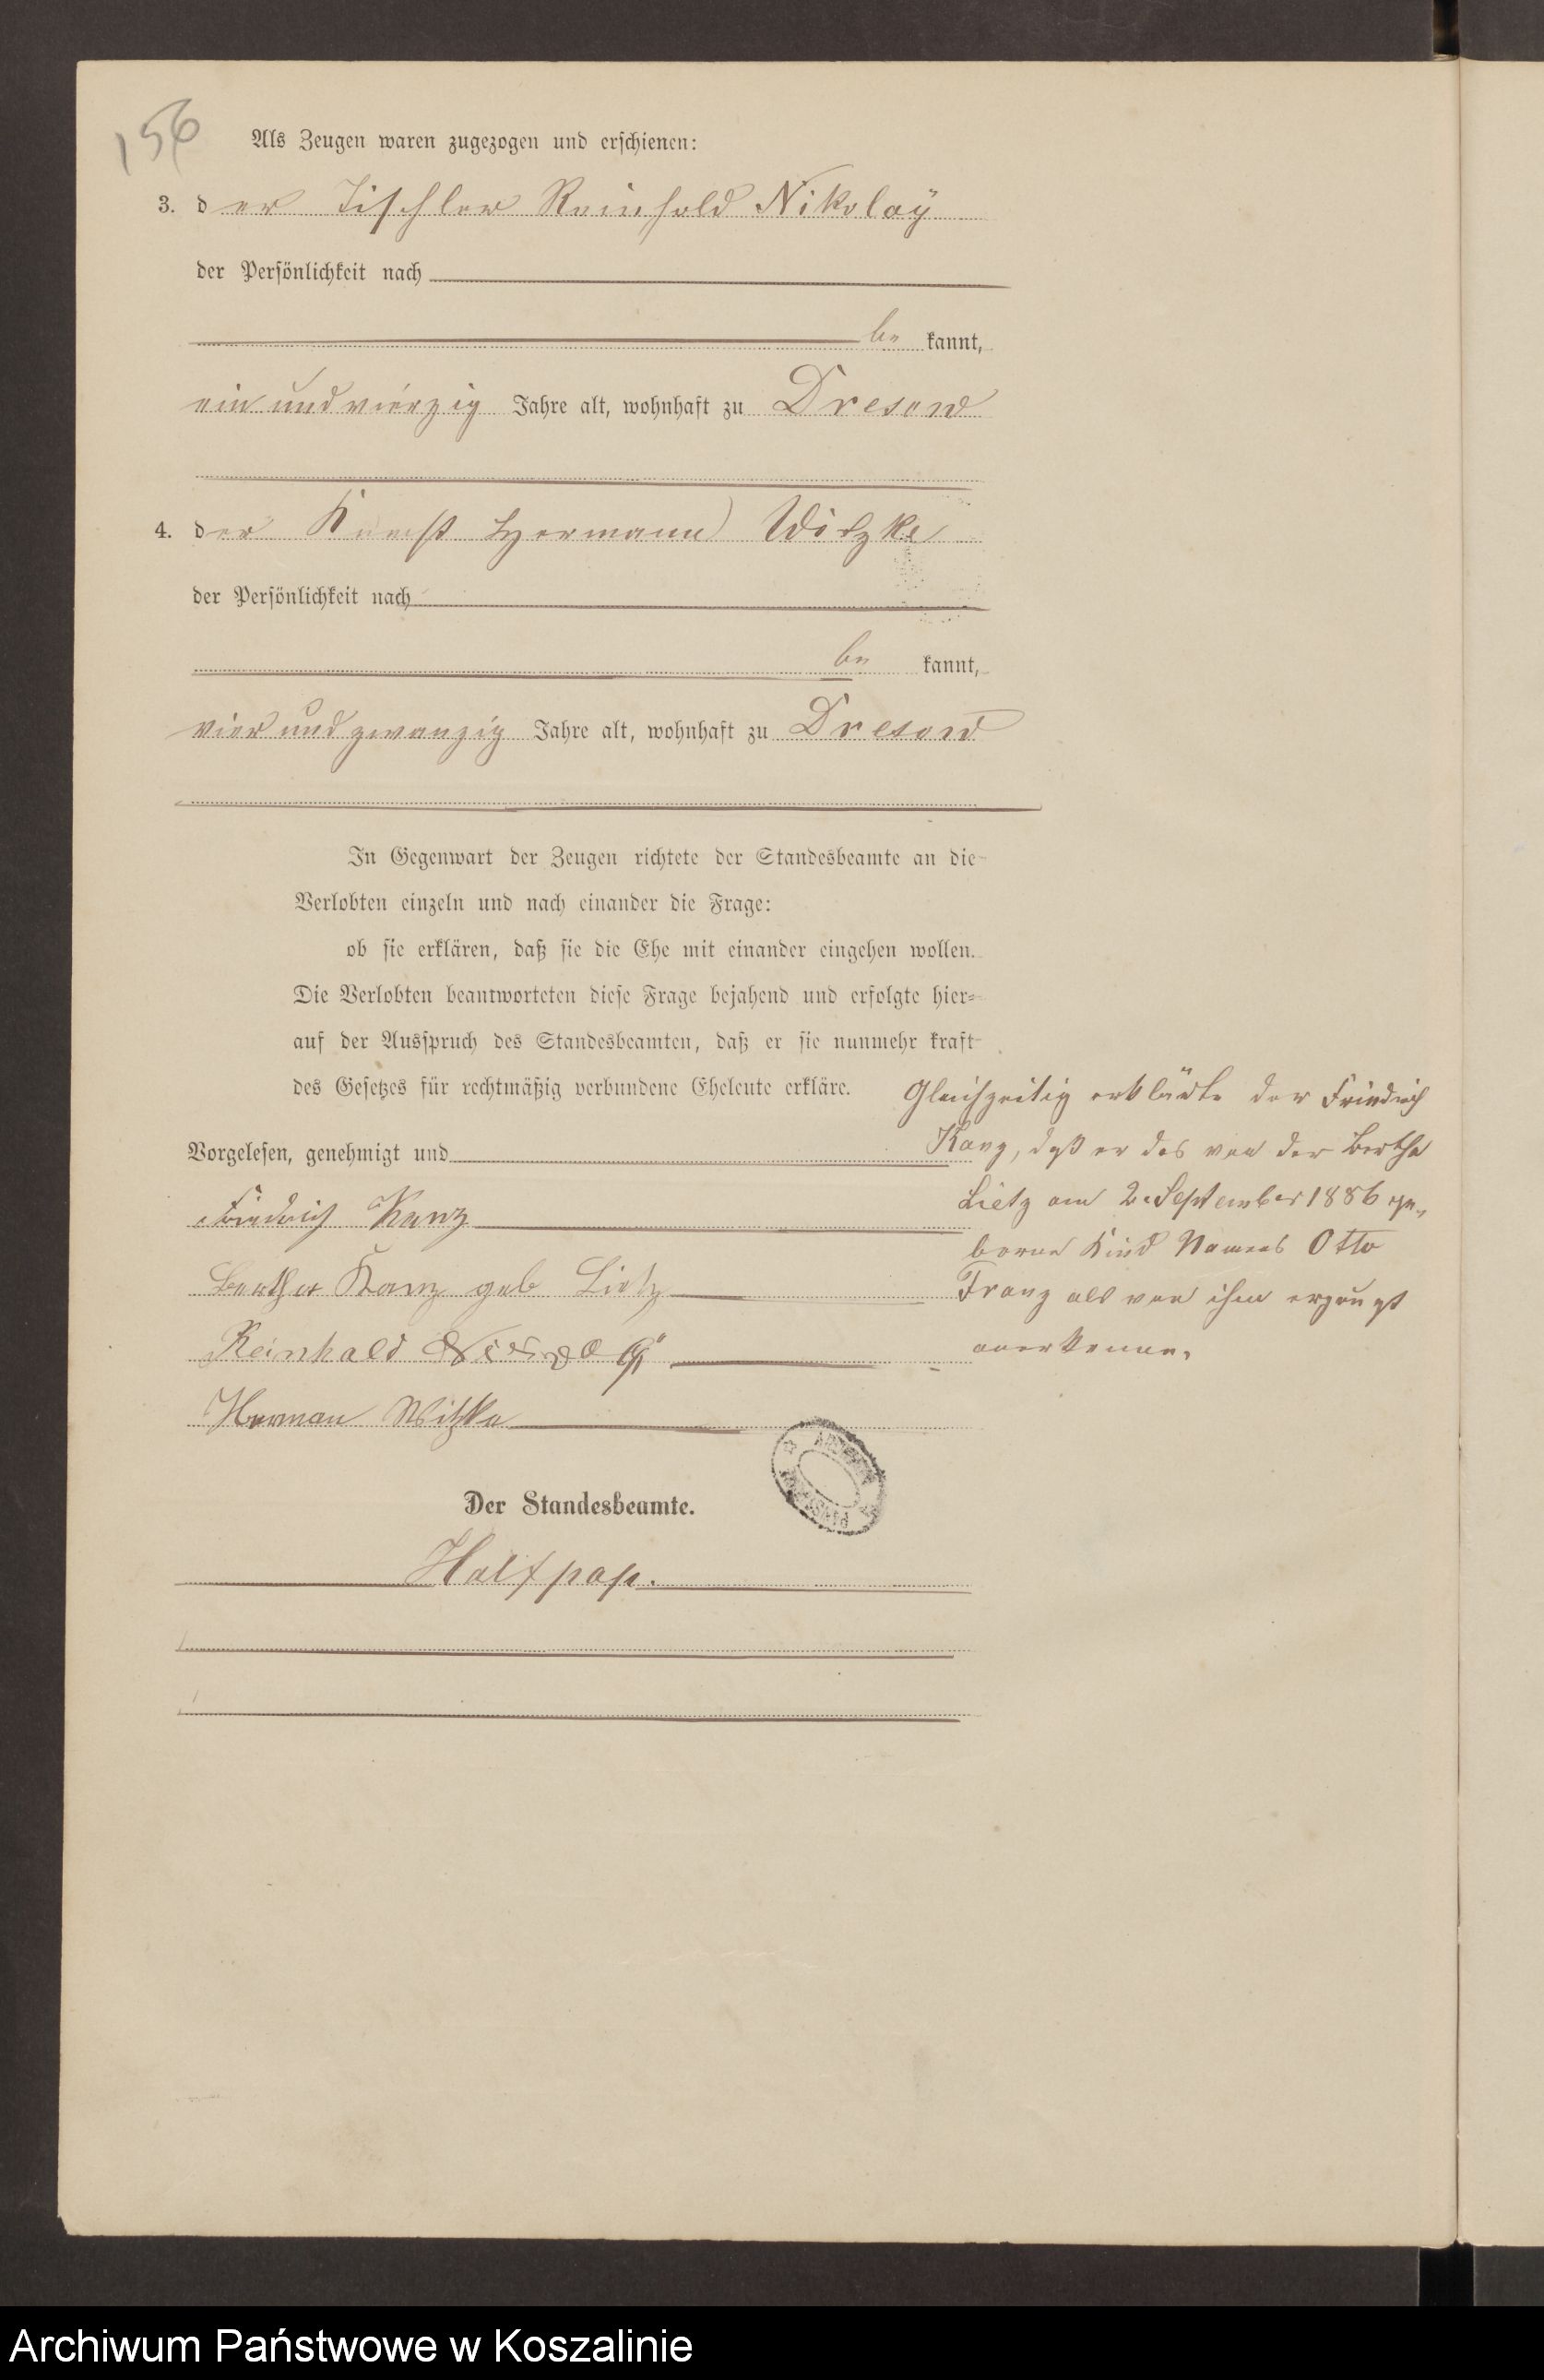 156
Als Zeugen waren zugezogen und erschienen:
3. der Tischler Reinhold Nikolaÿ
der Persönlichkeit nach
be kannt,
ein und vierzig Jahre alt, wohnhaft zu Dresow
4. der Knecht Hermann Witzke
der Persönlichkeit nach
be kannt,
vier und zwanzig Jahre alt, wohnhaft zu Dresow
In Gegenwart der Zeugen richtete der Standesbeamte an die
Verlobten einzeln und nach einander die Frage:
ob sie erklären, daß sie die Ehe mit einander eingehen wollen.
Die Verlobten beantworteten diese Frage bejahend und erfolgte hier-
auf der Ausspruch des Standesbeamten, daß er sie nunmehr kraft
des Gesetzes für rechtmäßig verbundene Eheleute erkläre.
Vorgelesen, genehmigt und
Friedrich Kanz
Bertha Kanz geb Lietz
Reinhald
Herman Witzke
Der Standesbeamte.
Halfpap.
Gleichzeitig erklärte der Friedrich
Kanz, daß er das von der Bertha
Lietz am 2. September 1886 ge-
borne Kind Namens Otto
Franz als von ihm erzeugt
anerkenne.
Archiwum Państwowe w Koszalinie